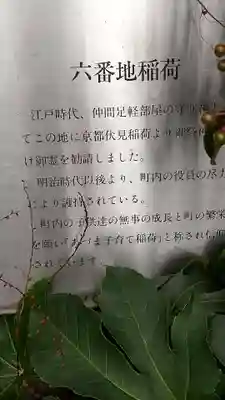 六番地稲荷
江戸時代、仲間足軽部屋の守り
てこの地に京都伏見稲荷より
け御霊を勧請しました。
明治時代以後より、町内の役員の尽力
により護持されている。
町内の子供達の無事の成長と町の繁栄
を願い「 子育て稲荷」と称され
されています。